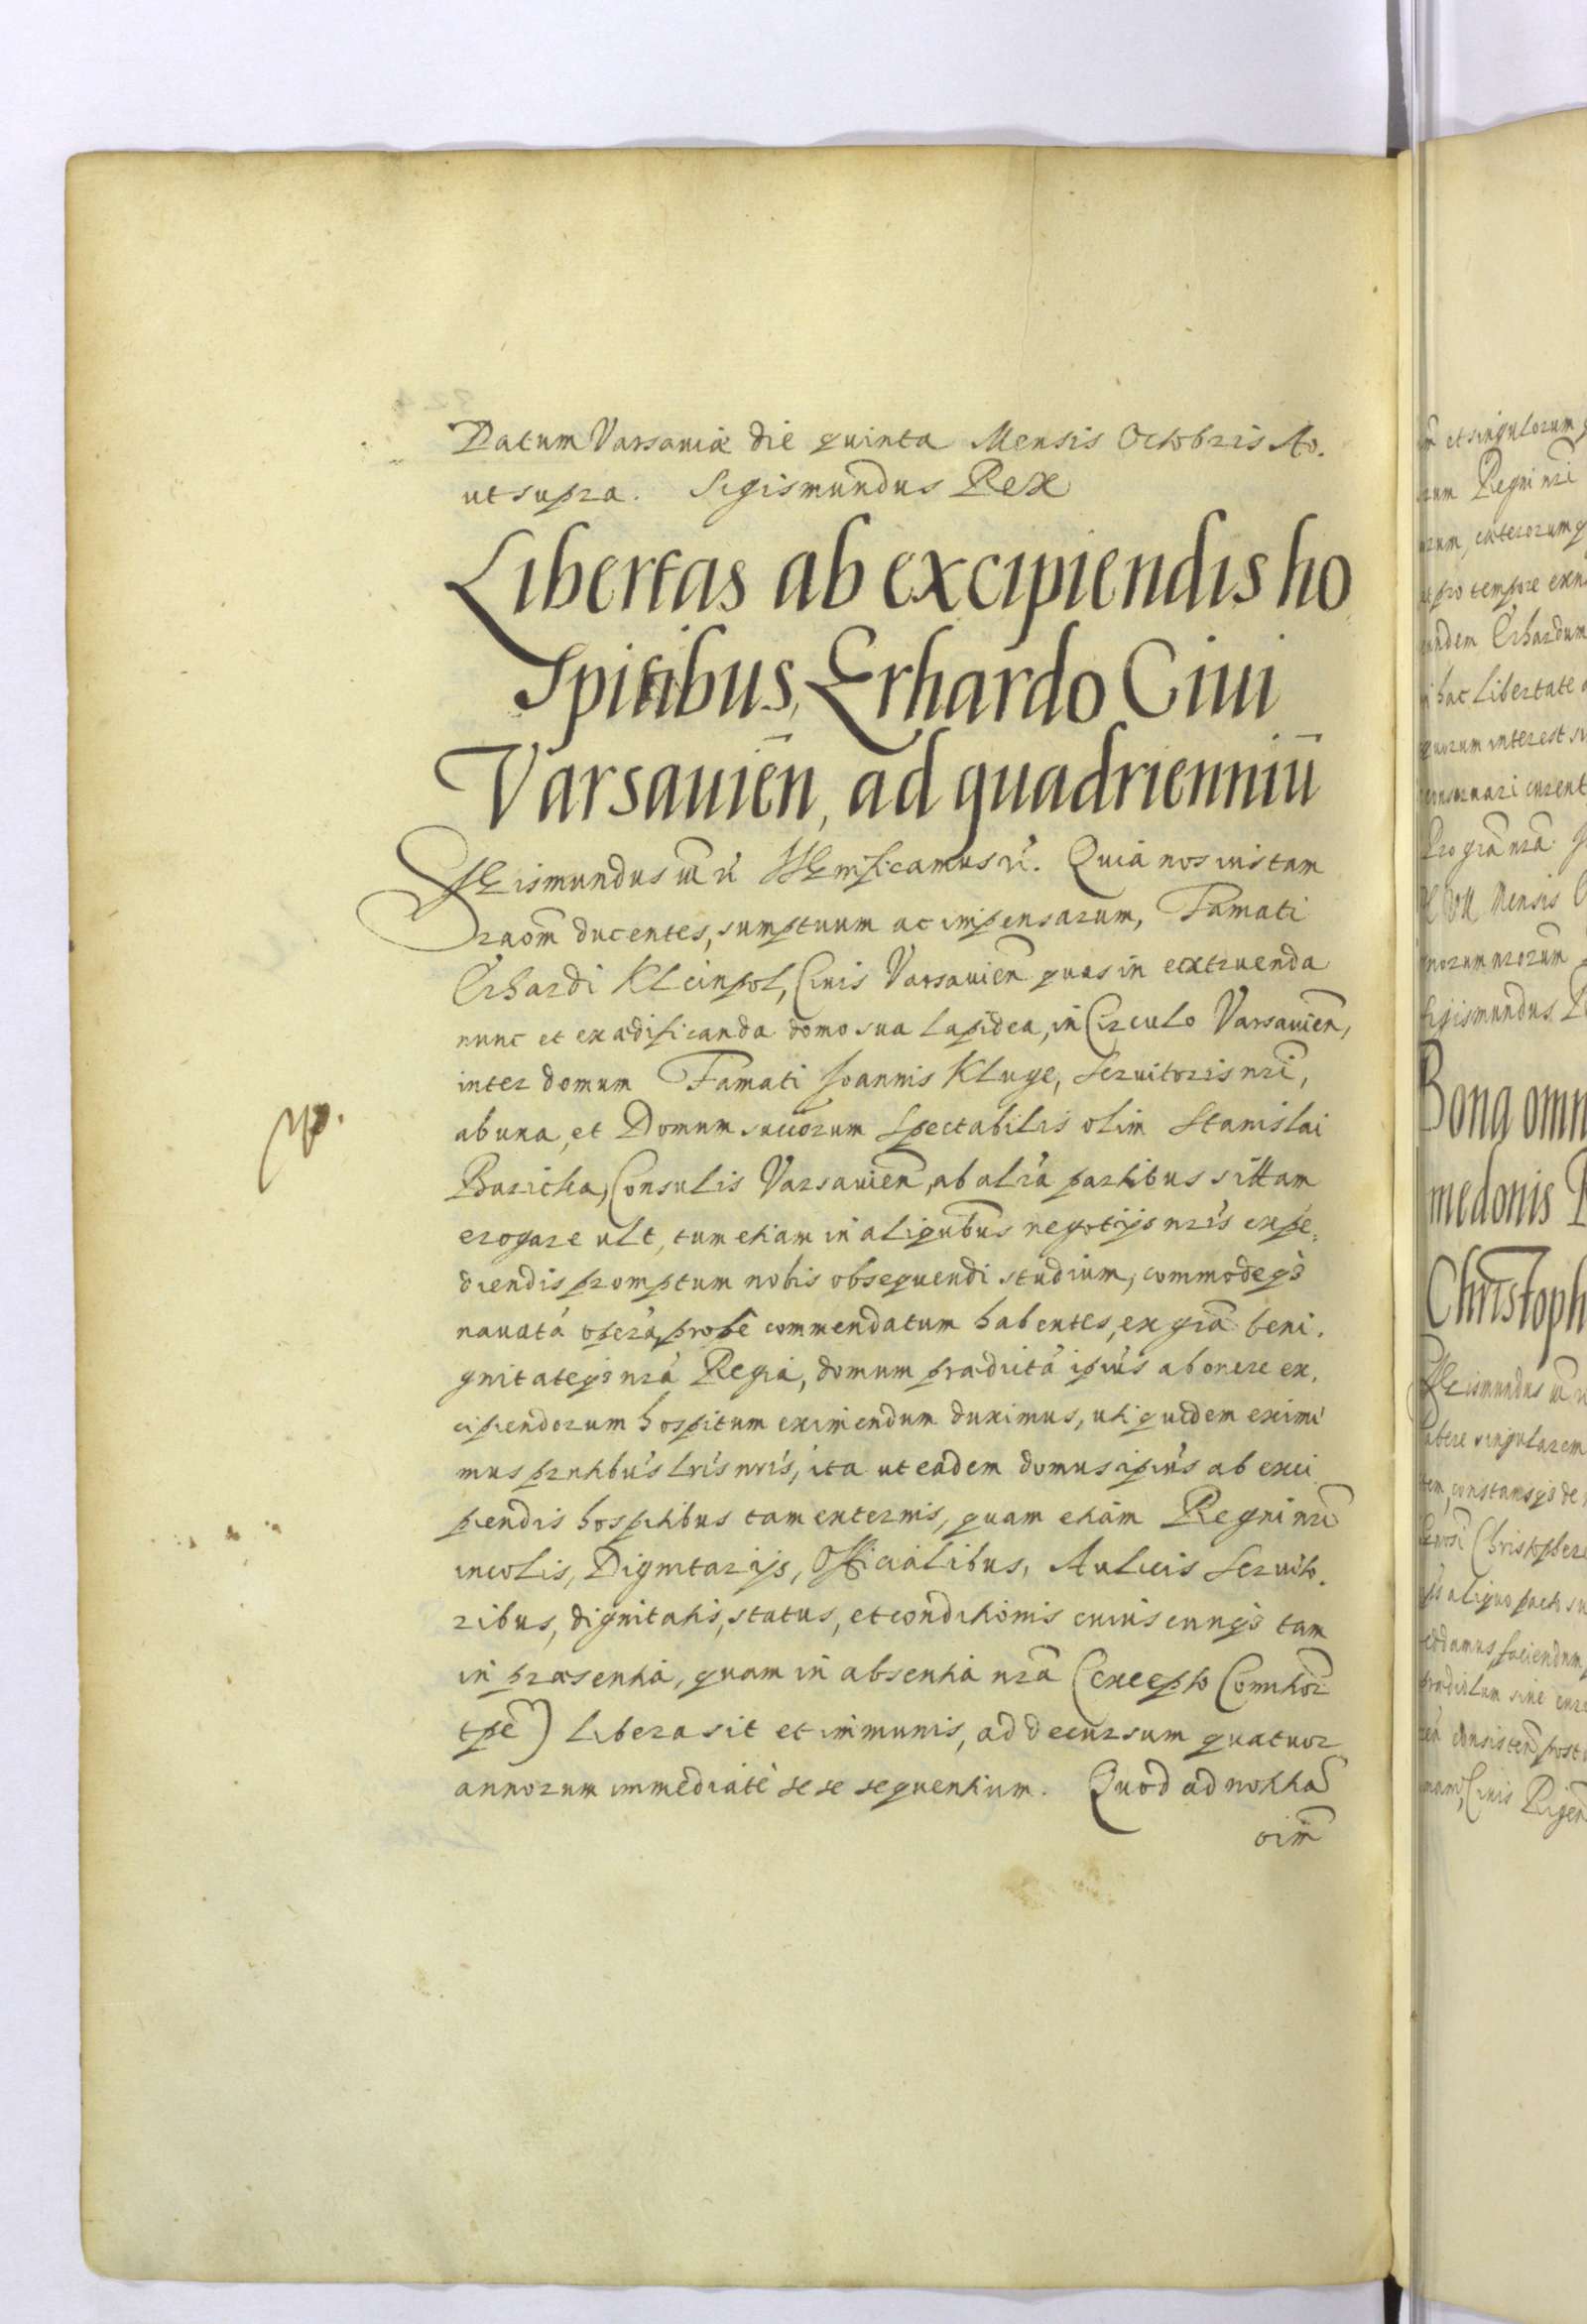 Datum Varsaviæ die quinta Mensis Octobris Ao.
ut supra. Sigismundus Rex
Libertas ab excipiendis ho
spitibus, Erhardo Ciui
Varsauien̄, ad quadrienniū
Sigismundus
Significamus
Quia nos iustam
rãom ducentes, sumptuum ac impensarum, Famati
Erhardi Kleinpol, Ciuis Varsauien̄ quas in extruenda
nunc et exædificanda domo sua lapidea, in Circulo Varsauien̄,
inter domum Famati Joannis Kluge, Seruitoris nrī,
ab una, et Domum succorum Spectabilis olim Stanislai
Baricka, Consulis Varsauien̄, ab alrà partibus sittam
erogare ult, tum etiam in aliqūbus negotijs nrīs expe,
diendis promptum nobis obsequendi studium, commodeqз
nauatà operà, probe commendatum habentes, ex grā beni,
gnitateqз nrà Regia, domum prædictà ipiūs ab onere ex,
cipiendorum hospitum eximendum duximus, uti quidem eximi
mus prntibūs lrīs nrīs, ita ut eadem domus ipiūs ab exci
piendis hospitibus tam externis, quam etiam Regni nrī
incolis, Dignitarijs, Officialibus, Aulicis Seruito,
ribus, dignitatis, status, et conditionis cuiuscunqз tam
in præsentia, quam in absentia nrā (excepto Comitior̄
tpē) libera sit et immunis, ad decursum quatuor
annorum immediatè se se sequentium. Quod ad notitiā
oim̄
um et singulorum
rum Regni nrī
rum, cæterorum
pro tempore
undem Erhardum
hac libertate
quorum interest
conseruari curent
Pro grā nrā
Mensis
norum nrorum
Sigismundus
Bona omn
medonis
Christoph
Sigismundus
singularem
constansqз de
Christophere
aliquo pacto
faciendum
prædictum sine
consisten̄
Ciuis Rigen̄